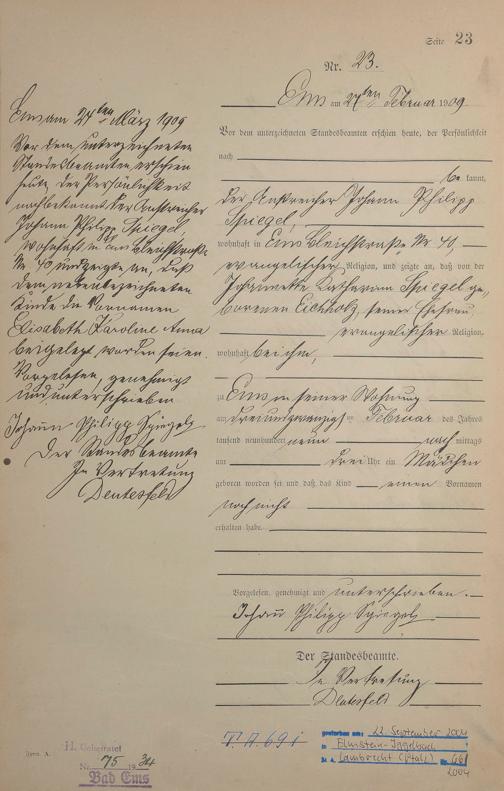 Seite 23
Nr. 23.
Ems am 27ten Februar 1909
Vor dem unterzeichneten Standesbeamten erschien heute, der Persönlichkeit
nach
be kannt,
der Anstreicher Johann Philipp
Spiegel,
wohnhaft in Ems Bleichstraße Nr. 40,
evangelischer Religion, und zeigte an, daß von der
Katharina Spiegel ge-
borenen Eichholz, seiner Ehefrau,
evangelischer Religion,
wohnhaft bei ihm,
zu Ems in seiner Wohnung
am dreiundzwanzigsten Februar des Jahres
tausend neunhundert neun nach mittags
um drei Uhr ein Mädchen
geboren worden sei und daß das Kind einen Vornamen
noch nicht
erhalten habe.
Vorgelesen, genehmigt und unterschrieben.
Johann Philipp Spiegel
Der Standesbeamte.
In Vertretung
Deutesfeld
Ems am 24ten März 1909
Vor dem unterzeichneten
Standesbeamten erschien
heute, der Persönlichkeit
nach bekannt, der Anstreicher
Johann Philipp Spiegel,
wohnhaft in Ems Bleichstraße
Nr. 40, und zeigte an, daß
dem nebenbezeichneten
Kinde die Vornamen
Elisabeth Karoline Anna
beigelegt worden seien.
Vorgelesen, genehmigt
und unterschrieben
Johann Philipp Spiegel
Der Standesbeamte
In Vertretung
Deutesfeld
Form. A.
H. Geheiratet
Nr. 75 1934
Bad Ems
gestorben am: 22. September 2004
in Elmstein-Iggelbach
St. A. Lambrecht (Pfalz) Nr. 66/
2004